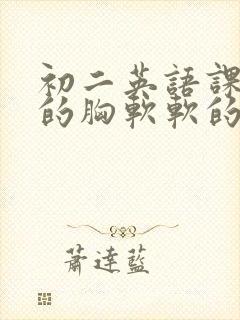 初二英語課
的胸軟軟的
蕭達藍